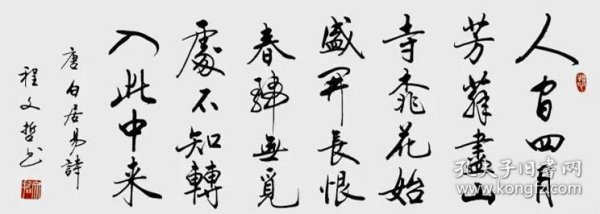 人間四月
芳菲盡山
寺桃花始
盛開長恨
春歸無覓
處不知轉
入此中来
唐白居易詩
程文哲书
孔夫子旧书网
www.kongfz.com